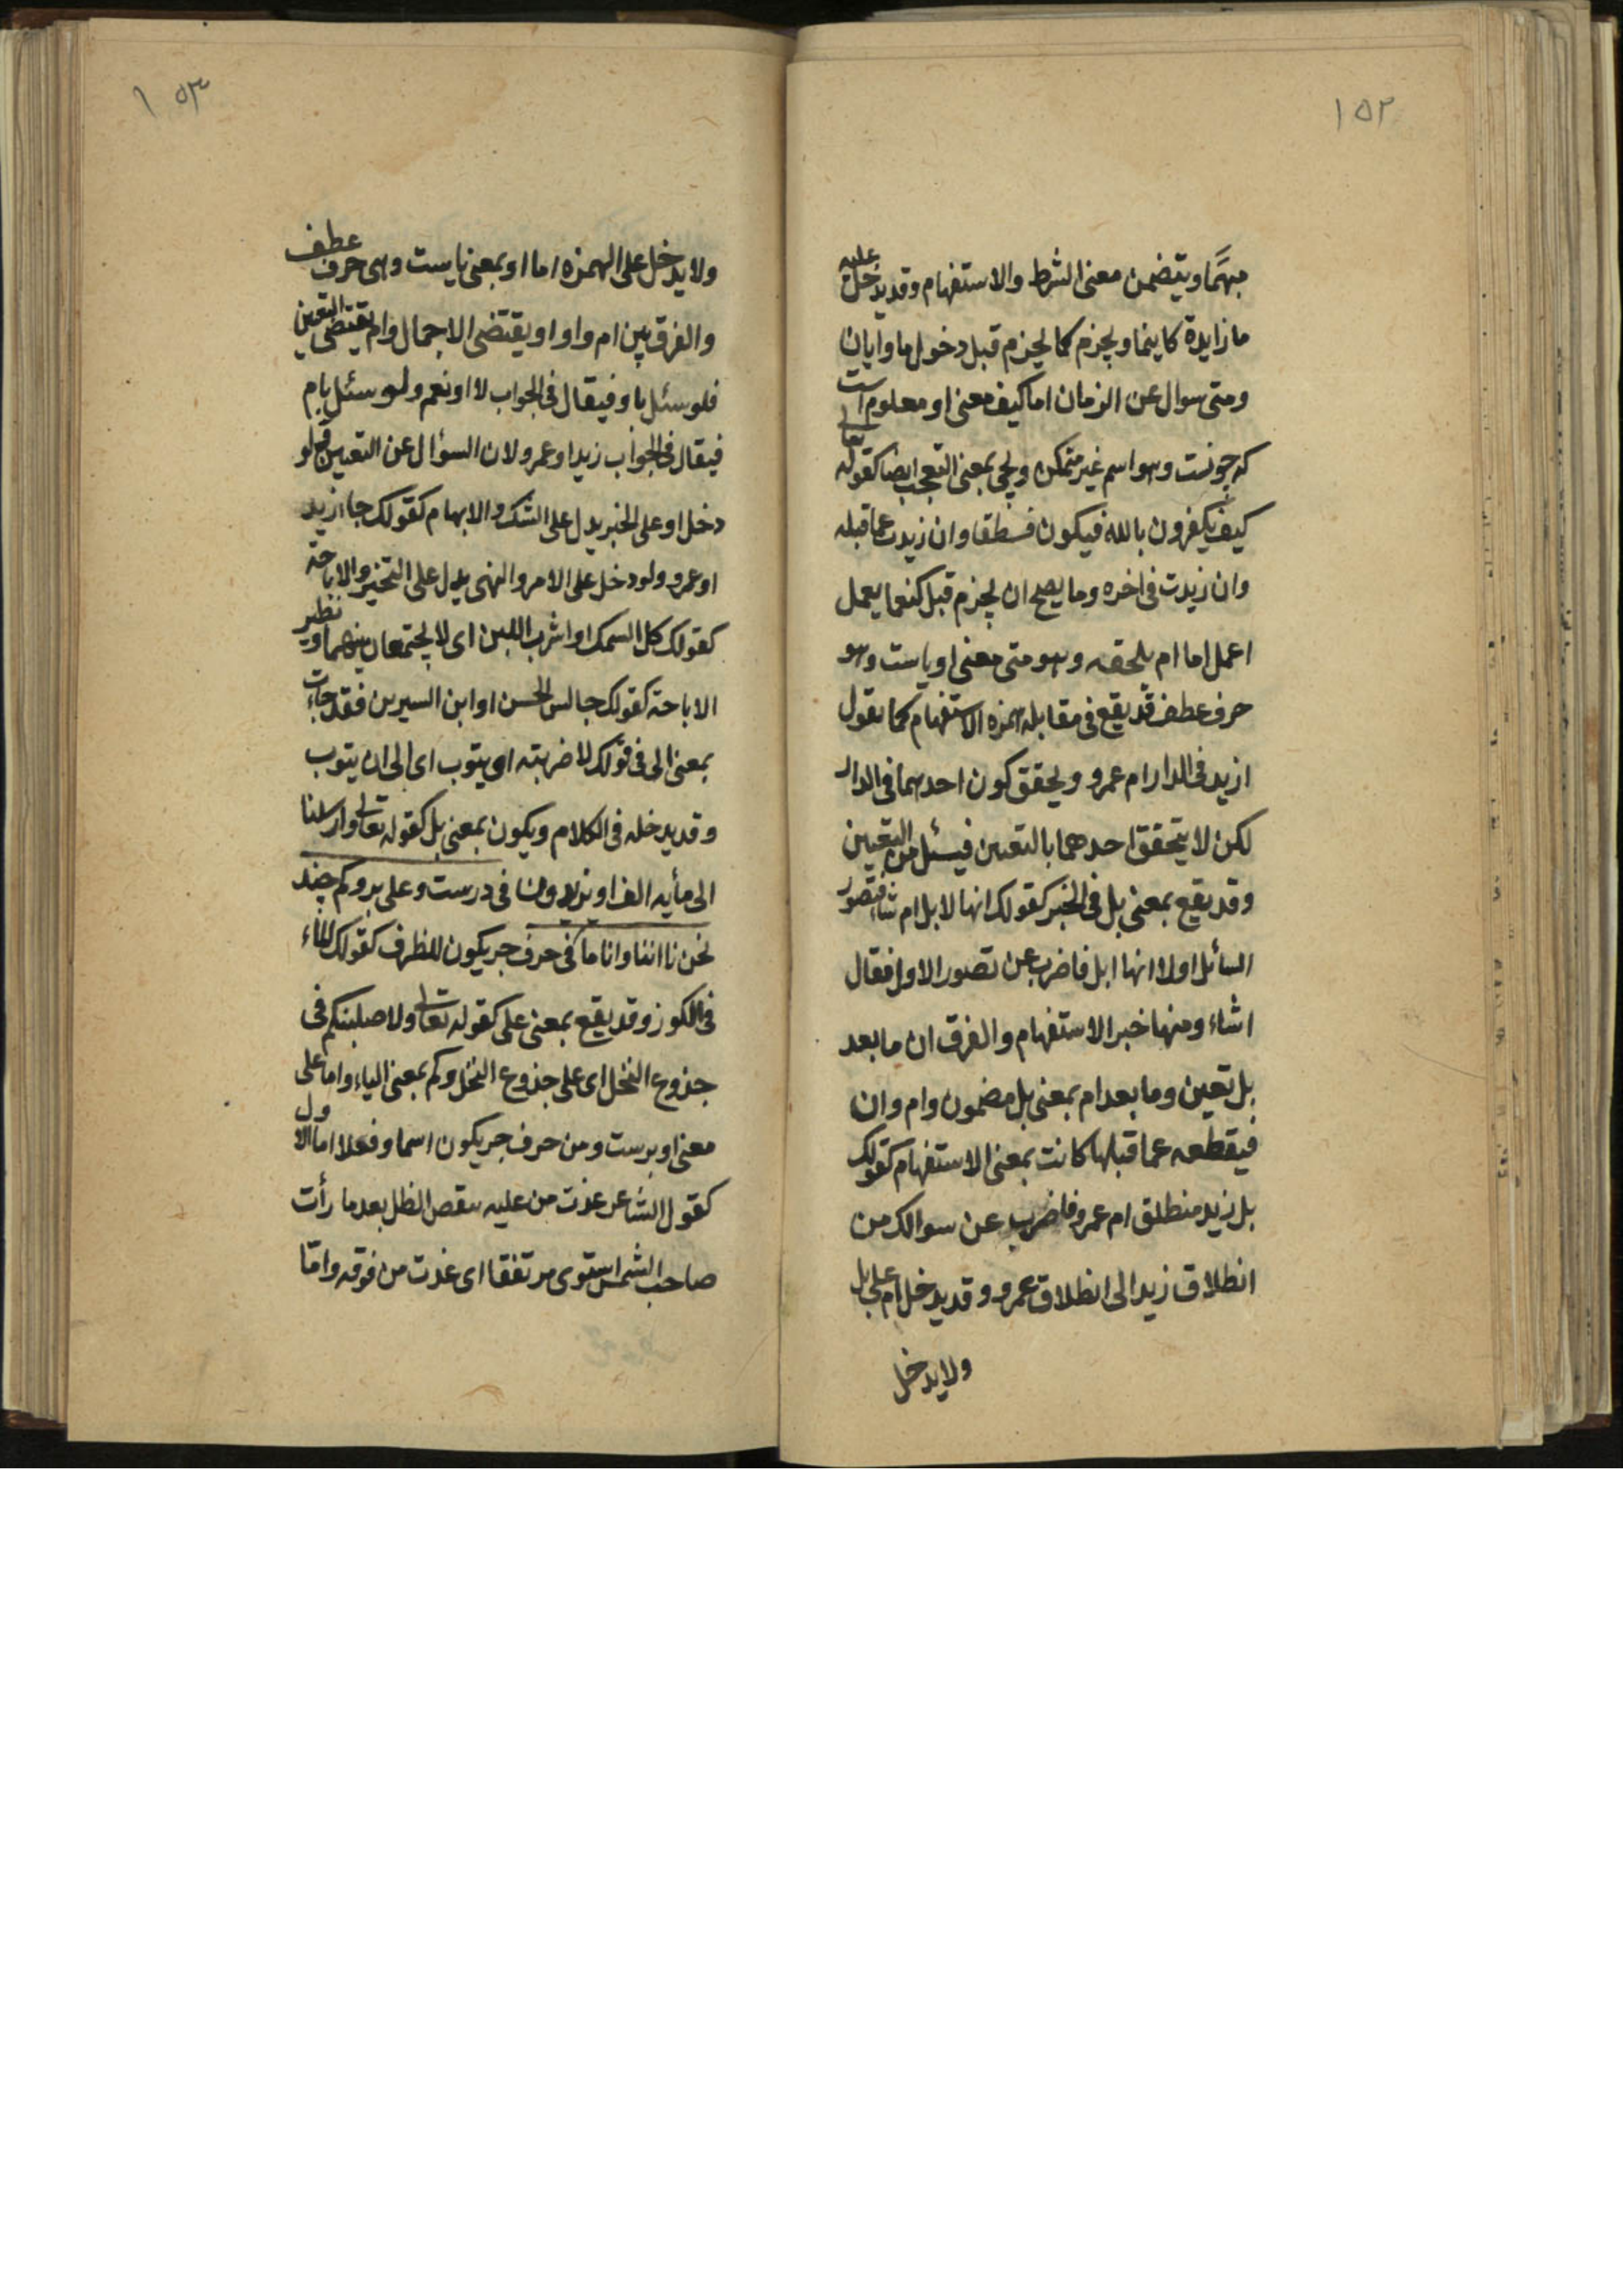 ١٥٢
مبهما ويتضمن معنى الشرط والاستفهام وقد يدخل عليه
ما زايدة كاينما ويجزم كما يجزم قبل دخول ما وايان
ومتى سوال عن الزمان اما كيف معنى او معلوم است
كه چونست وهو اسم غير متمكن ويجئ بمعنى التعجب ايضا كقوله تعالى
كيف يكفرون بالله فيكون وان زيدت عما قبله
وان زيدت فى اخره وما يصح ان يجزم قبل كنعما يعمل
اعمل اما ام يلحقه وهو متى معنى او ياست وهو
حرف عطف قد يقع فى مقابله همزه الاستفهام كما تقول
ازيد فى الدار ام عمرو ويحقق كون احدهما فى الدار
لكن لا يتحقق احدهما بالتعين فيسئل من التعين
وقد يقع بمعنى بل فى الخبر كقولك انها لابل ام شاء فتصور
السائل اولا انها ابل فاضرب عن تصور الاول فقال
اشاء ومنها خبر الاستفهام والفرق ان ما بعد
بل تعين وما بعد ام بمعنى بل مضمون وام وان
فيقطعه عما قبلها كانت بمعنى الاستفهام كقولك
بل زيد منطلق ام عمرو فاضرب عن سوالك من
انطلاق زيد الى انطلاق عمرو وقد يدخل ام على بل
ولا يدخل
١٥٣
ولا يدخل على الهمزه اما او بمعنى ياست وهى حرف عطف
والفرق بين ام واو او يقتضى الاجمال وام يقتضى التعين
فلو سئل باو فيقال فى الجواب لا او نعم ولو سئل بام
فيقال فى الجواب زيدا وعمرو لان السؤال عن التعين ولو
دخل او على الخبر يدل على الشك والابهام كقولك جا ازيد
او عمرو ولو دخل على الامر والنهى يدل على التخير والاباحة
كقولك كل السمك او اشرب اللبن اى لا يجتمعان بينهما ونظير
الاباحة كقولك جالس الحسن او ابن السيرين فقد جاءت
بمعنى الى فى قولك لاضربته او يتوب اى الى ان يتوب
وقد يدخله فى الكلام ويكون بمعنى بل كقوله تعالى وارسلنا
الى مأيه الف او يزيدون فى درست وعلى بر وكم چند
نحن نا اننا وانا ما فى حرف جر يكون للظرف كقولك الماء
فى الكوز وقد يقع بمعنى على كقوله تعالى ولاصلبنكم فى
جذوع النخل اى على جذوع النخل وكم بمعنى الياء واما على
معنى او برست ومن حرف جر يكون اسما وفعلا اما الاول
كقول الشاعر غدت من عليه الظل بعد ما رأت
صاحب الشمس استوى مرتفقا اى غدت من فوقه وامّا